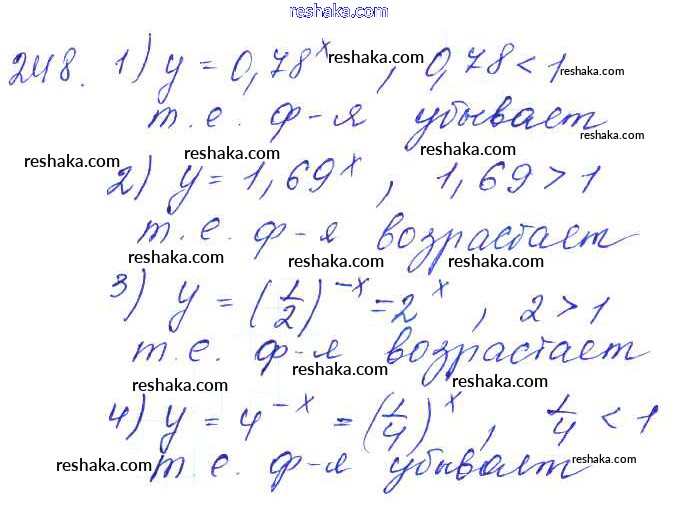 reshaka.com
248. 1) y = 0,78^x reshaka.com, 0,78 < 1 reshaka.com
т.е. ф-я убывает
reshaka.com reshaka.com reshaka.com
2) y = 1,69^x, 1,69 > 1
reshaka.com
т.е. ф-я возрастает
reshaka.com reshaka.com
3) y = (1/2)^{-x} = 2^x, 2 > 1
т.е. ф-я возрастает
reshaka.com reshaka.com
4) y = 4^{-x} = (1/4)^x, 1/4 < 1
reshaka.com т.е. ф-я убывает reshaka.com